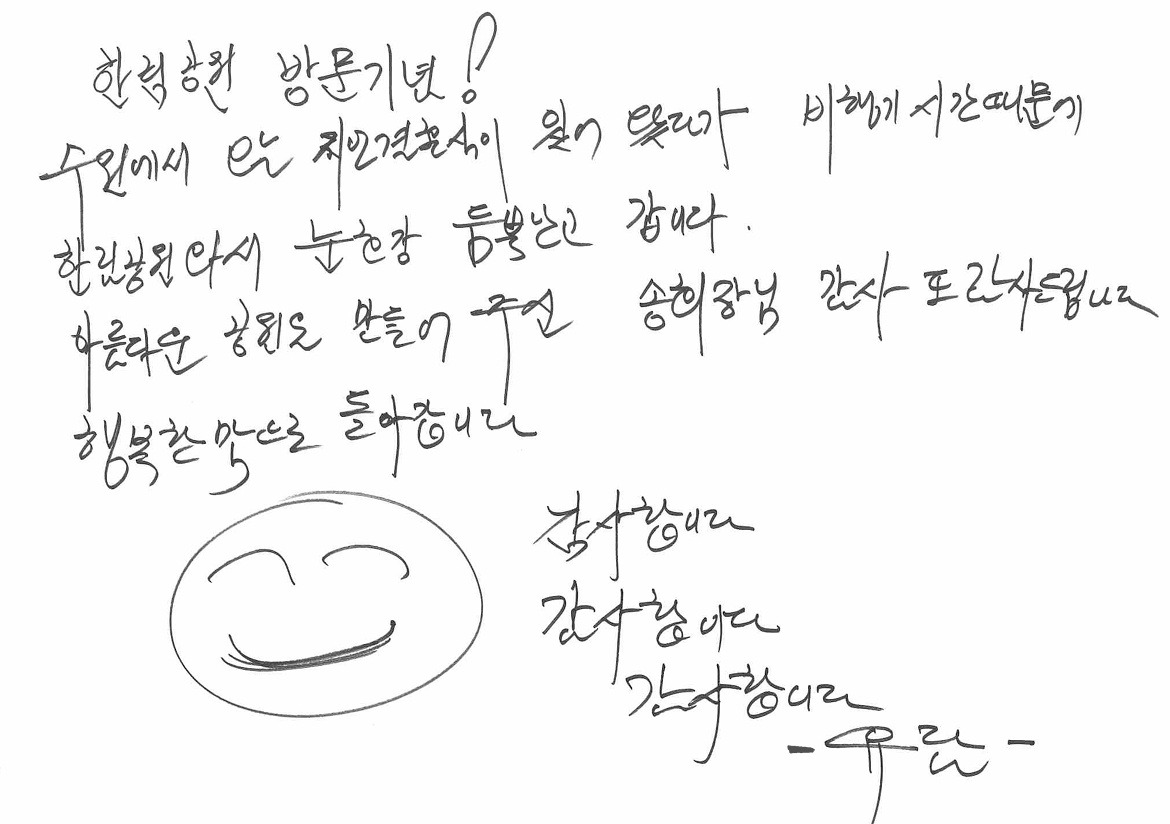 한림공원 방문기념!
수원에서 온 지인결혼식이 있어 왔다가 비행기 시간때문에
한림공원와서 눈호강 듬뿍난고 갑니다.
아름다운 공원을 만들어 주신 송회장님 감사 또 감사드립니다
행복한 맘으로 돌아갑니다
감사합니다
감사합니다
감사합니다
- 우란 -